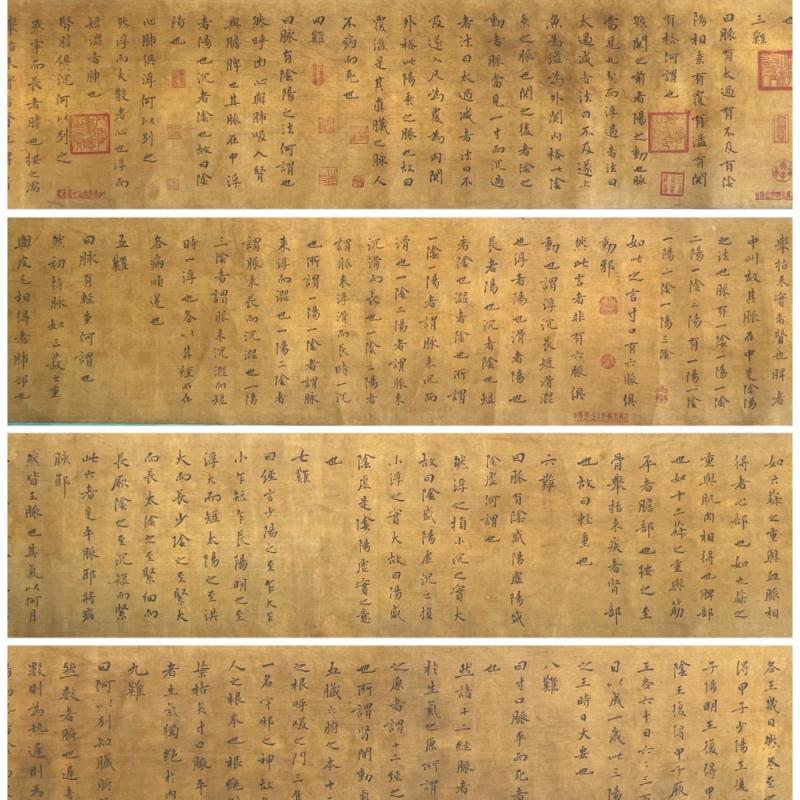 也
三難
曰脈有太過有不及有陰
陽相乘有覆有溢有關
有格何謂也
然關之前者陽之動也脈
當見九分而浮過者法曰
太過減者法曰不及遂上
魚為溢為外關內格此陰
乘之脈也關之後者陰之
動者脈當見一寸而沉過
者法曰太過減者法曰不
及遂入尺為覆為內關
外格此陽乘之脈也故曰
覆溢是其真臟之脈人
不病而死也
四難
曰脈有陰陽之法何謂也
然呼出心與肺吸入腎
與膽脾也其脈在中浮
者陽也沉者陰也故曰陰
陽也
心肺俱浮何以別之
然浮而大散者心也浮而
短澀者肺也
腎膽俱沉何以別之
然牢而長者膽也按之濡
舉指來實者腎也脾者
舉指來實者腎也脾者
中州故其脈在中是陰陽
之法也脈有一陰一陽一陰
二陽一陰三陽有一陽一陰
一陽二陰一陽三陰
如此之言寸口有六脈俱
動邪
然此言者非有六脈俱
動也謂浮沉長短滑澀
也浮者陽也滑者陽也
長者陽也沉者陰也短
者陰也澀者陰也所謂
一陰一陽者謂脈來沉而
滑也一陰二陽者謂脈來
沉滑而長也一陰三陽者
謂脈來浮滑而長時一沉
也所謂一陽一陰者謂脈
來浮而澀也一陽二陰者
謂脈來長而沉澀也一陽
三陰者謂脈來沉澀而短
時一浮也各以其經所在
名病順逆也
五難
曰脈有輕重何謂也
然初持脈如三菽之重
與皮毛相得者肺部也
如六菽之重與血脈相
得者心部也如九菽之
重與肌肉相得也脾部
也如十二菽之重與筋
平者膽部也按之至
骨舉指來疾者腎部
也故曰輕重也
六難
曰脈有陰盛陽虛陽盛
陰虛何謂也
然浮之損小沉之實大
故曰陰盛陽虛沉之損
小浮之實大故曰陽盛
陰虛是陰陽虛實之意
也
七難
曰經言少陽之至乍大乍
小乍短乍長陽明之至
浮大而短太陽之至洪
大而長少陰之至緊大
而長太陰之至緊細而
長厥陰之至沉短而緊
此六者是平脈耶將病
脈耶
然皆王脈也其氣以何月
各王幾日然冬至
得甲子少陽王復
子陽明王復得甲
陰王復得甲子厥
王各六十日六六三百
日以成一歲此三陽
之王時日大要也
八難
曰寸口脈平而死者
也
然諸十二經脈者
於生氣之原所謂
之原者謂十二經之
也所謂腎間動氣
五臟六腑之本十二
之根呼吸之門三焦
一名守邪之神故
人之根本也根絕則
葉枯矣寸口脈平
者生氣獨絕於內
九難
曰何以別知臟腑
然數者腑也遲者
數則為熱遲則為